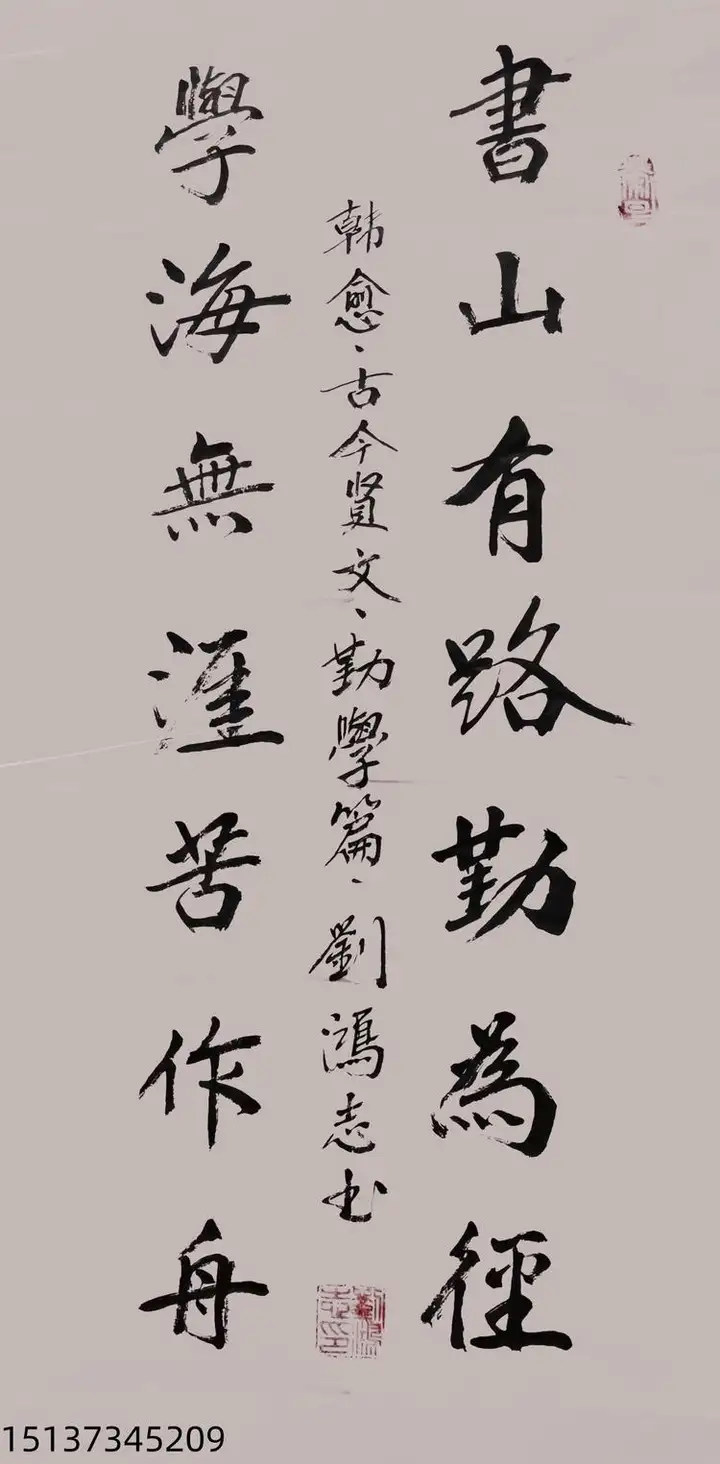 書山有路勤為徑
學海無涯苦作舟
韩愈、古今贤文、勤學篇、劉鴻志书
15137345209